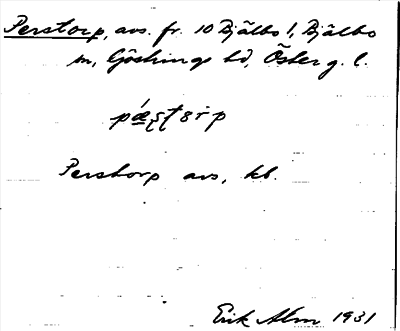 Perstorp, avs. fr. 10 Bjälbo 1, Bjälbo
sn, Göstrings hd, Österg. l.
pǽʂʈɵrp
Perstorp avs, kb.
Erik Alm 1931